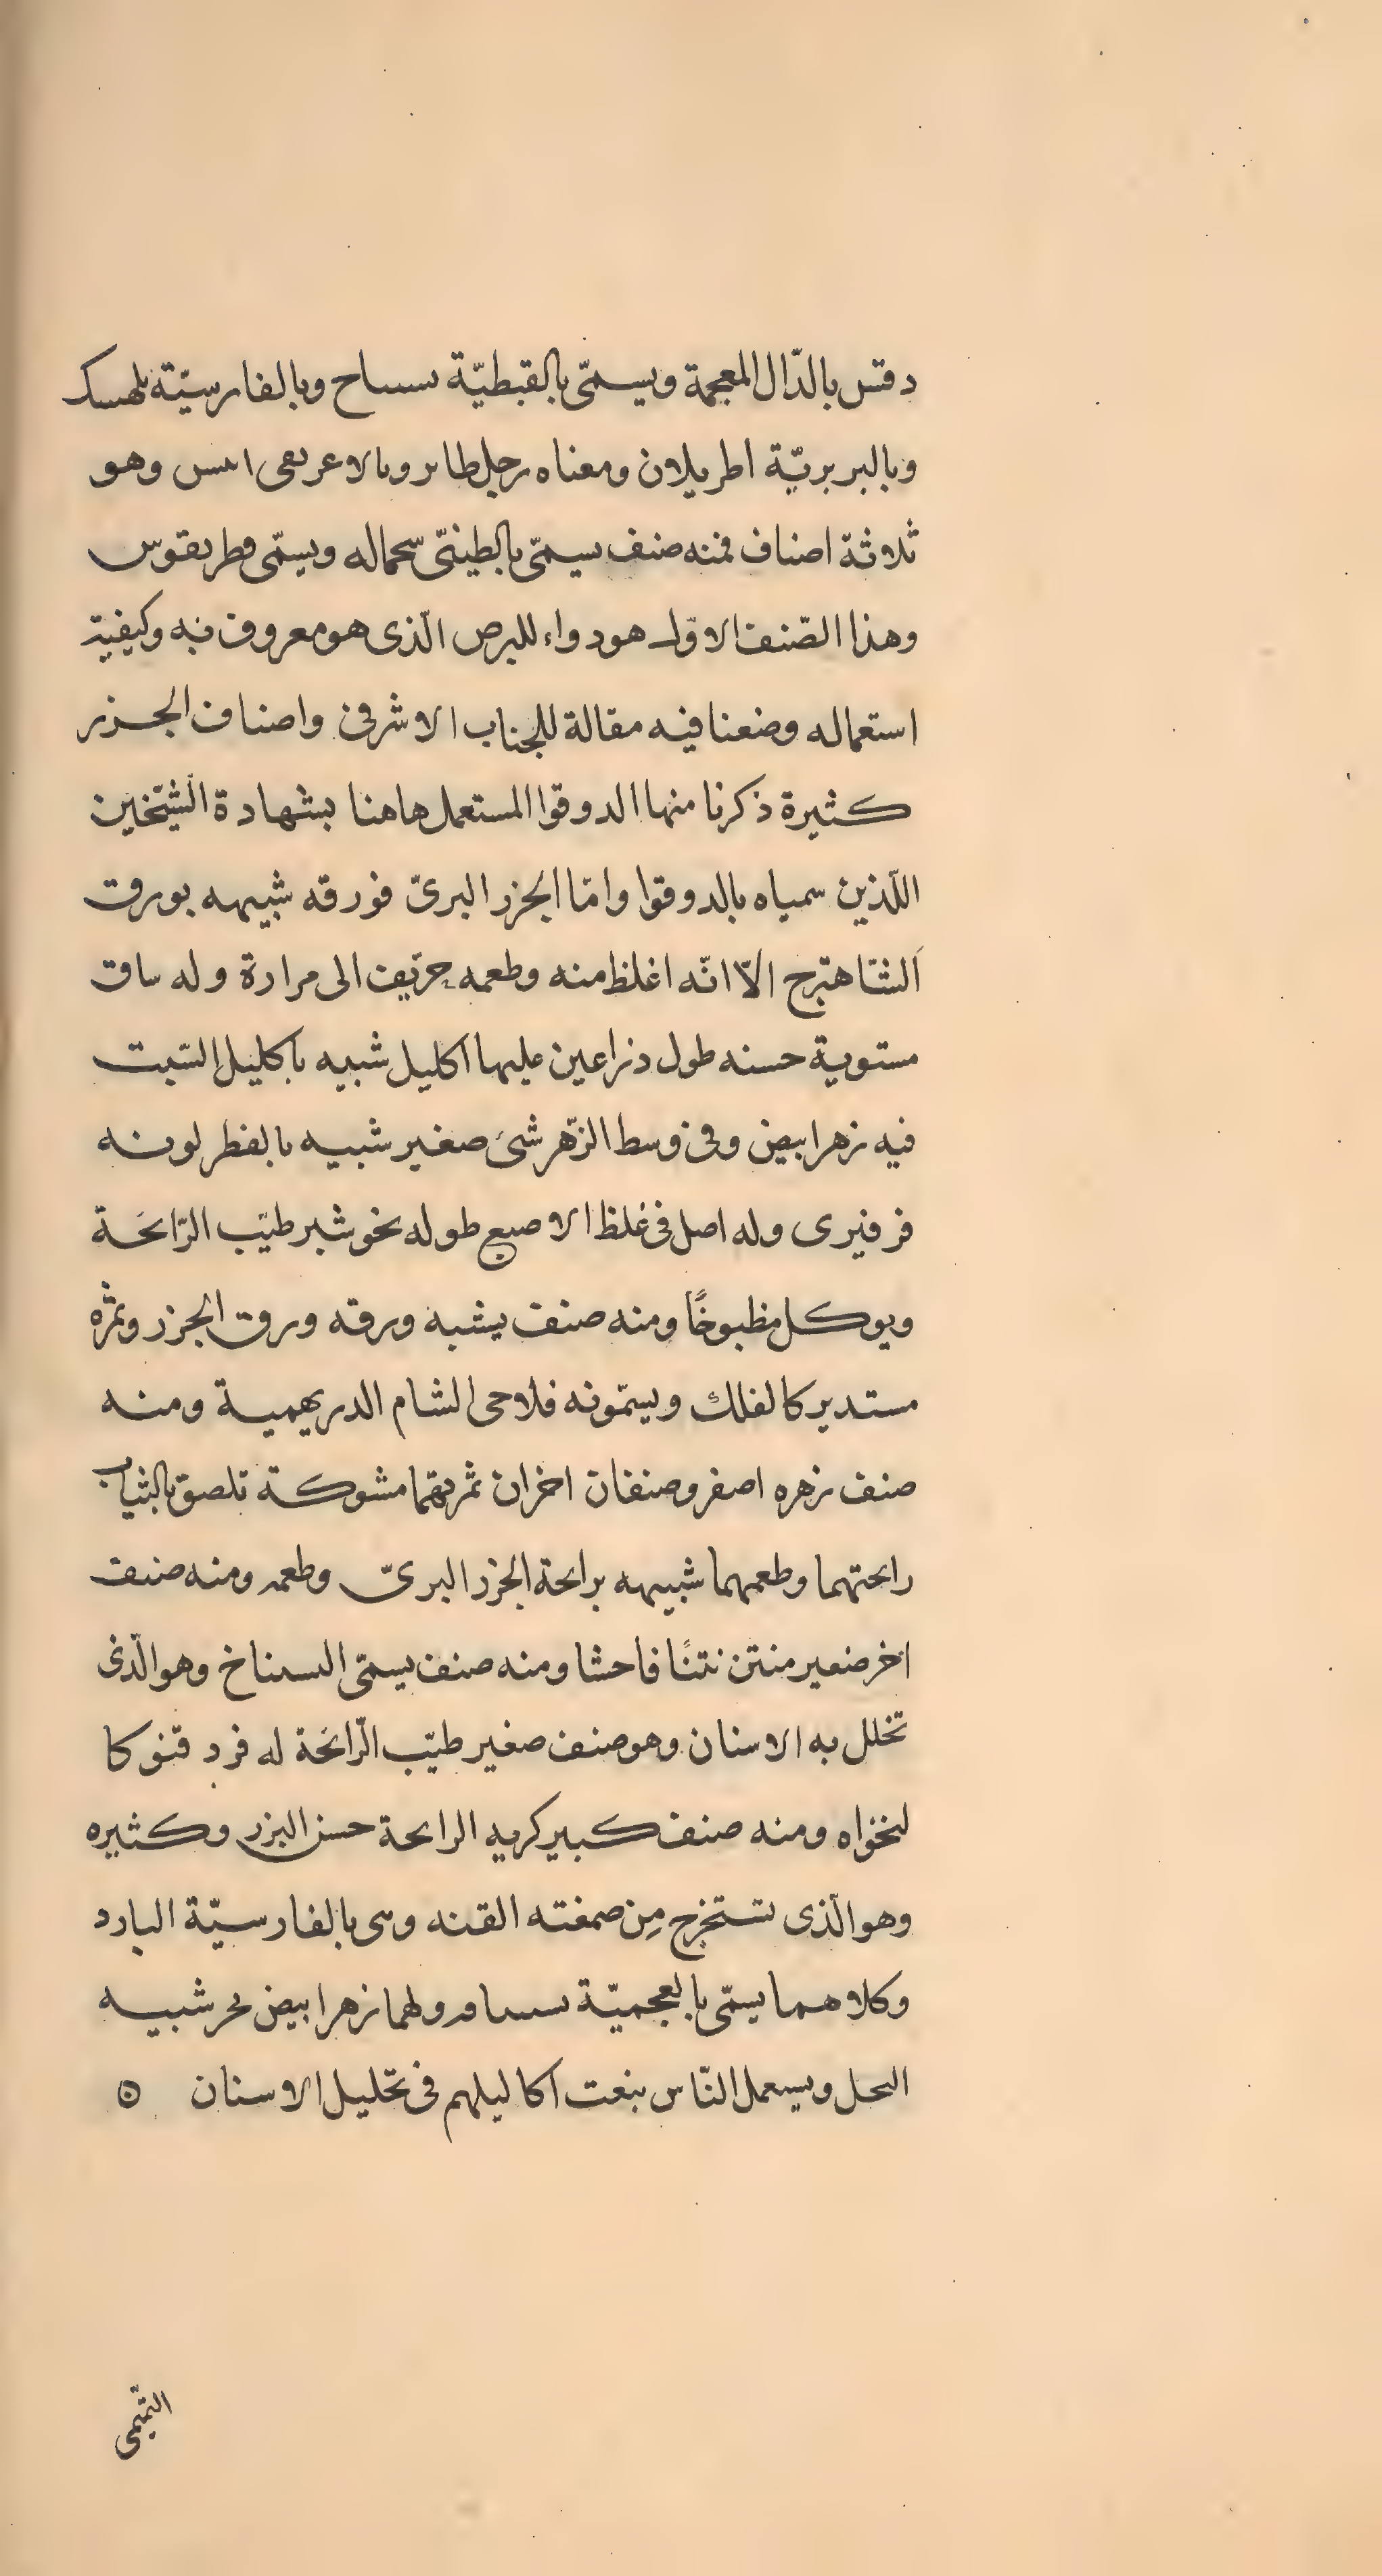 دقس بالدّال المعجمة ويسمّى بالقبطيّة وبالفارسيّة
وبالبربريّة اطريلان ومعناه رجل طاير وهو
ثلاثة اصناف فمنه صنف يسمّى بالطينىّ ويسمّى
وهذا الصّنف الاوّل هو دواء للبرص الّذى هو معروف فيه وكيفية
استعماله وضعنا فيه مقالة للجناب الاشرفى واصناف الجزر
كثيرة ذكرنا منها الدوقوا المستعمل هاهنا بشهادة الشّيخين
اللّذين سمياه بالدوقوا وامّا الجزر البرىّ فورقه شبيهه بورق
الشّاهترج الّا انّه اغلظ منه وطعمه حرّيف الى مرارة وله ساق
مستوية حسنه طول ذراعين عليها اكليل شبيه باكليل الشبت
فيه زهر ابيض وفى وسط الزّهر شئ صغير شبيه بالفطر لونه
فرفيرى وله اصل فى غلظ الاصبع طوله نحو شبر طيّب الرّائحة
ويوكل مطبوخًا ومنه صنف يشبه ورقه ورق الجزر وثمره
مستدير كالفلك ويسمّونه فلاحى الشام الدريهمية ومنه
صنف زهره اصفر وصنفان اخران ثمرتهما مشوكة تلصق بالثياب
رايحتهما وطعمهما شبيهه برايحة الجزر البرىّ وطعمه ومنه صنف
اخر صغير منتن نتنًا فاحشا ومنه صنف يسمّى وهو الّذى
تخلل به الاسنان وهو صنف صغير طيّب الرّائحة له كا
لنخواه ومنه صنف كبير كريه الرايحة حسن البزر وكثيره
وهو الّذى تستخرج مِن صمغته القنه وهى بالفارسيّة البارد
وكلاهما يسمّى بالعجميّة ولهما زهر ابيض شبيه
ويستعمل النّاس اكاليلهم فى تخليل الاسنان
التّميمى